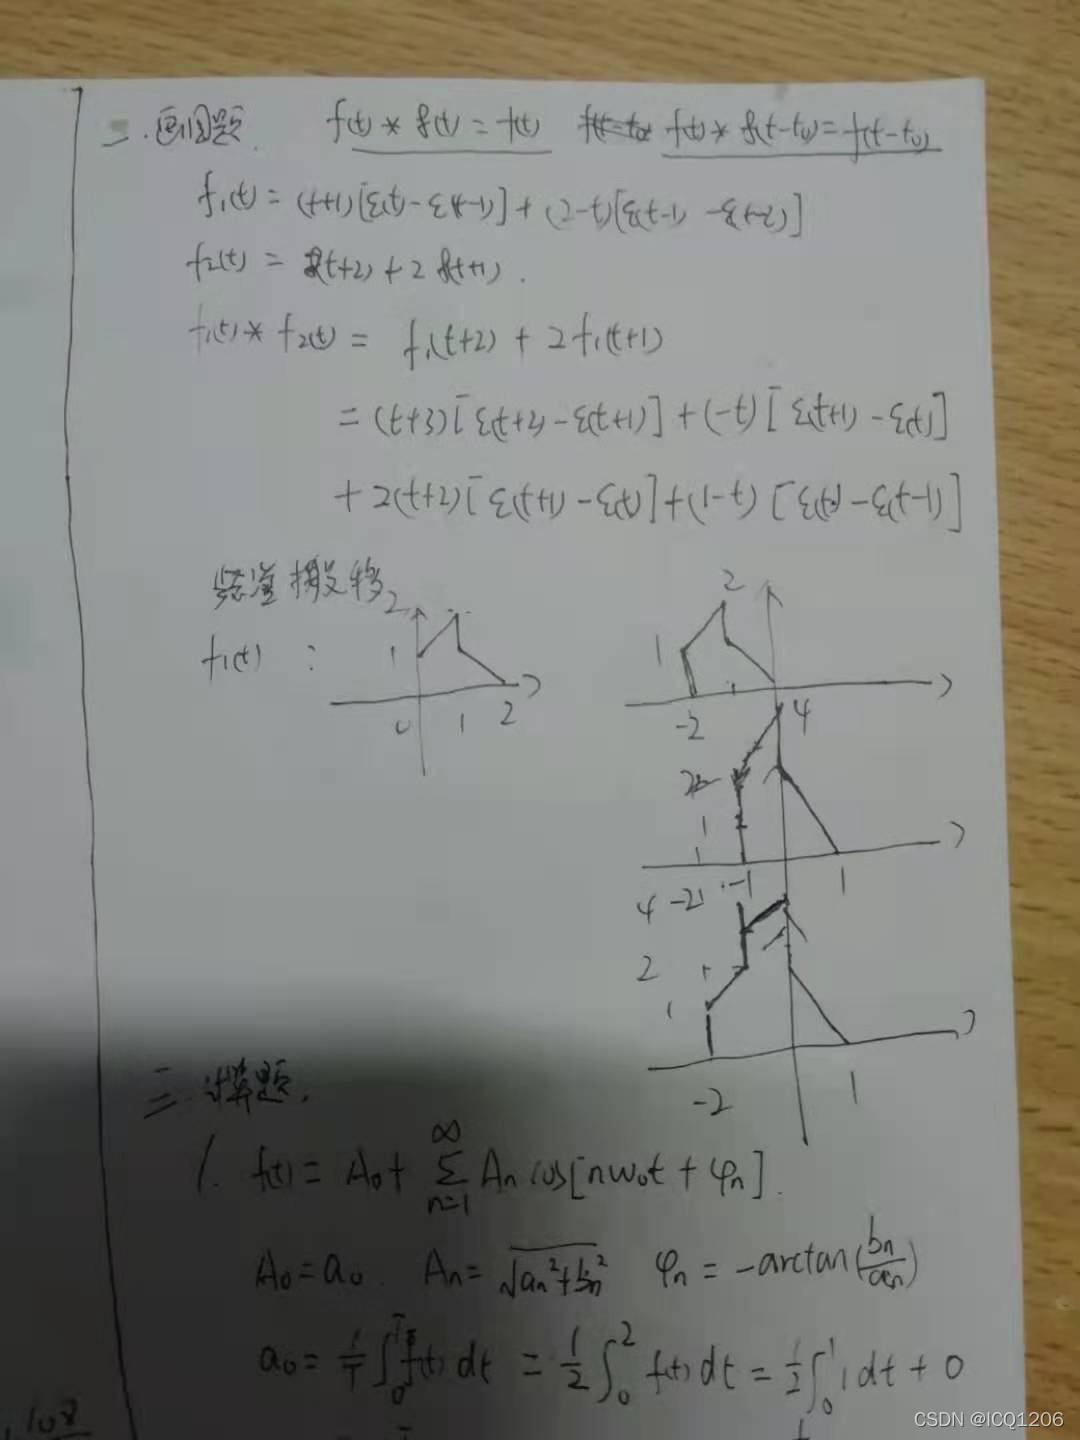 二.画图题. f(t) * δ(t) = f(t) f(t) * δ(t-t₀) = f(t-t₀)
f₁(t) = (t+1)[ε(t)-ε(t-1)] + (2-t)[ε(t-1) - ε(t-2)]
f₂(t) = δ(t+2) + 2δ(t+1).
f₁(t) * f₂(t) = f₁(t+2) + 2f₁(t+1)
= (t+3)[ε(t+2)-ε(t+1)] + (-t)[ε(t+1) - ε(t)]
+ 2(t+2)[ε(t+1) - ε(t)] + (1-t) [ε(t) - ε(t-1)]
搬移
f₁(t) :
2
1
0 1 2
2
1
-2
4
2
1
-2 -1 1
4
2
1
-2 1
三.计算题.
1. f(t) = A₀ + ∑ₙ₌₁^∞ Aₙ cos[nω₀t + φₙ].
A₀ = a₀. Aₙ = √(aₙ²+bₙ²) φₙ = -arctan(bₙ/aₙ)
a₀ = 1/T ∫₀ᵀ f(t) dt = 1/2 ∫₀² f(t) dt = 1/2 ∫₀¹ 1 dt + 0
CSDN @ICQ1206